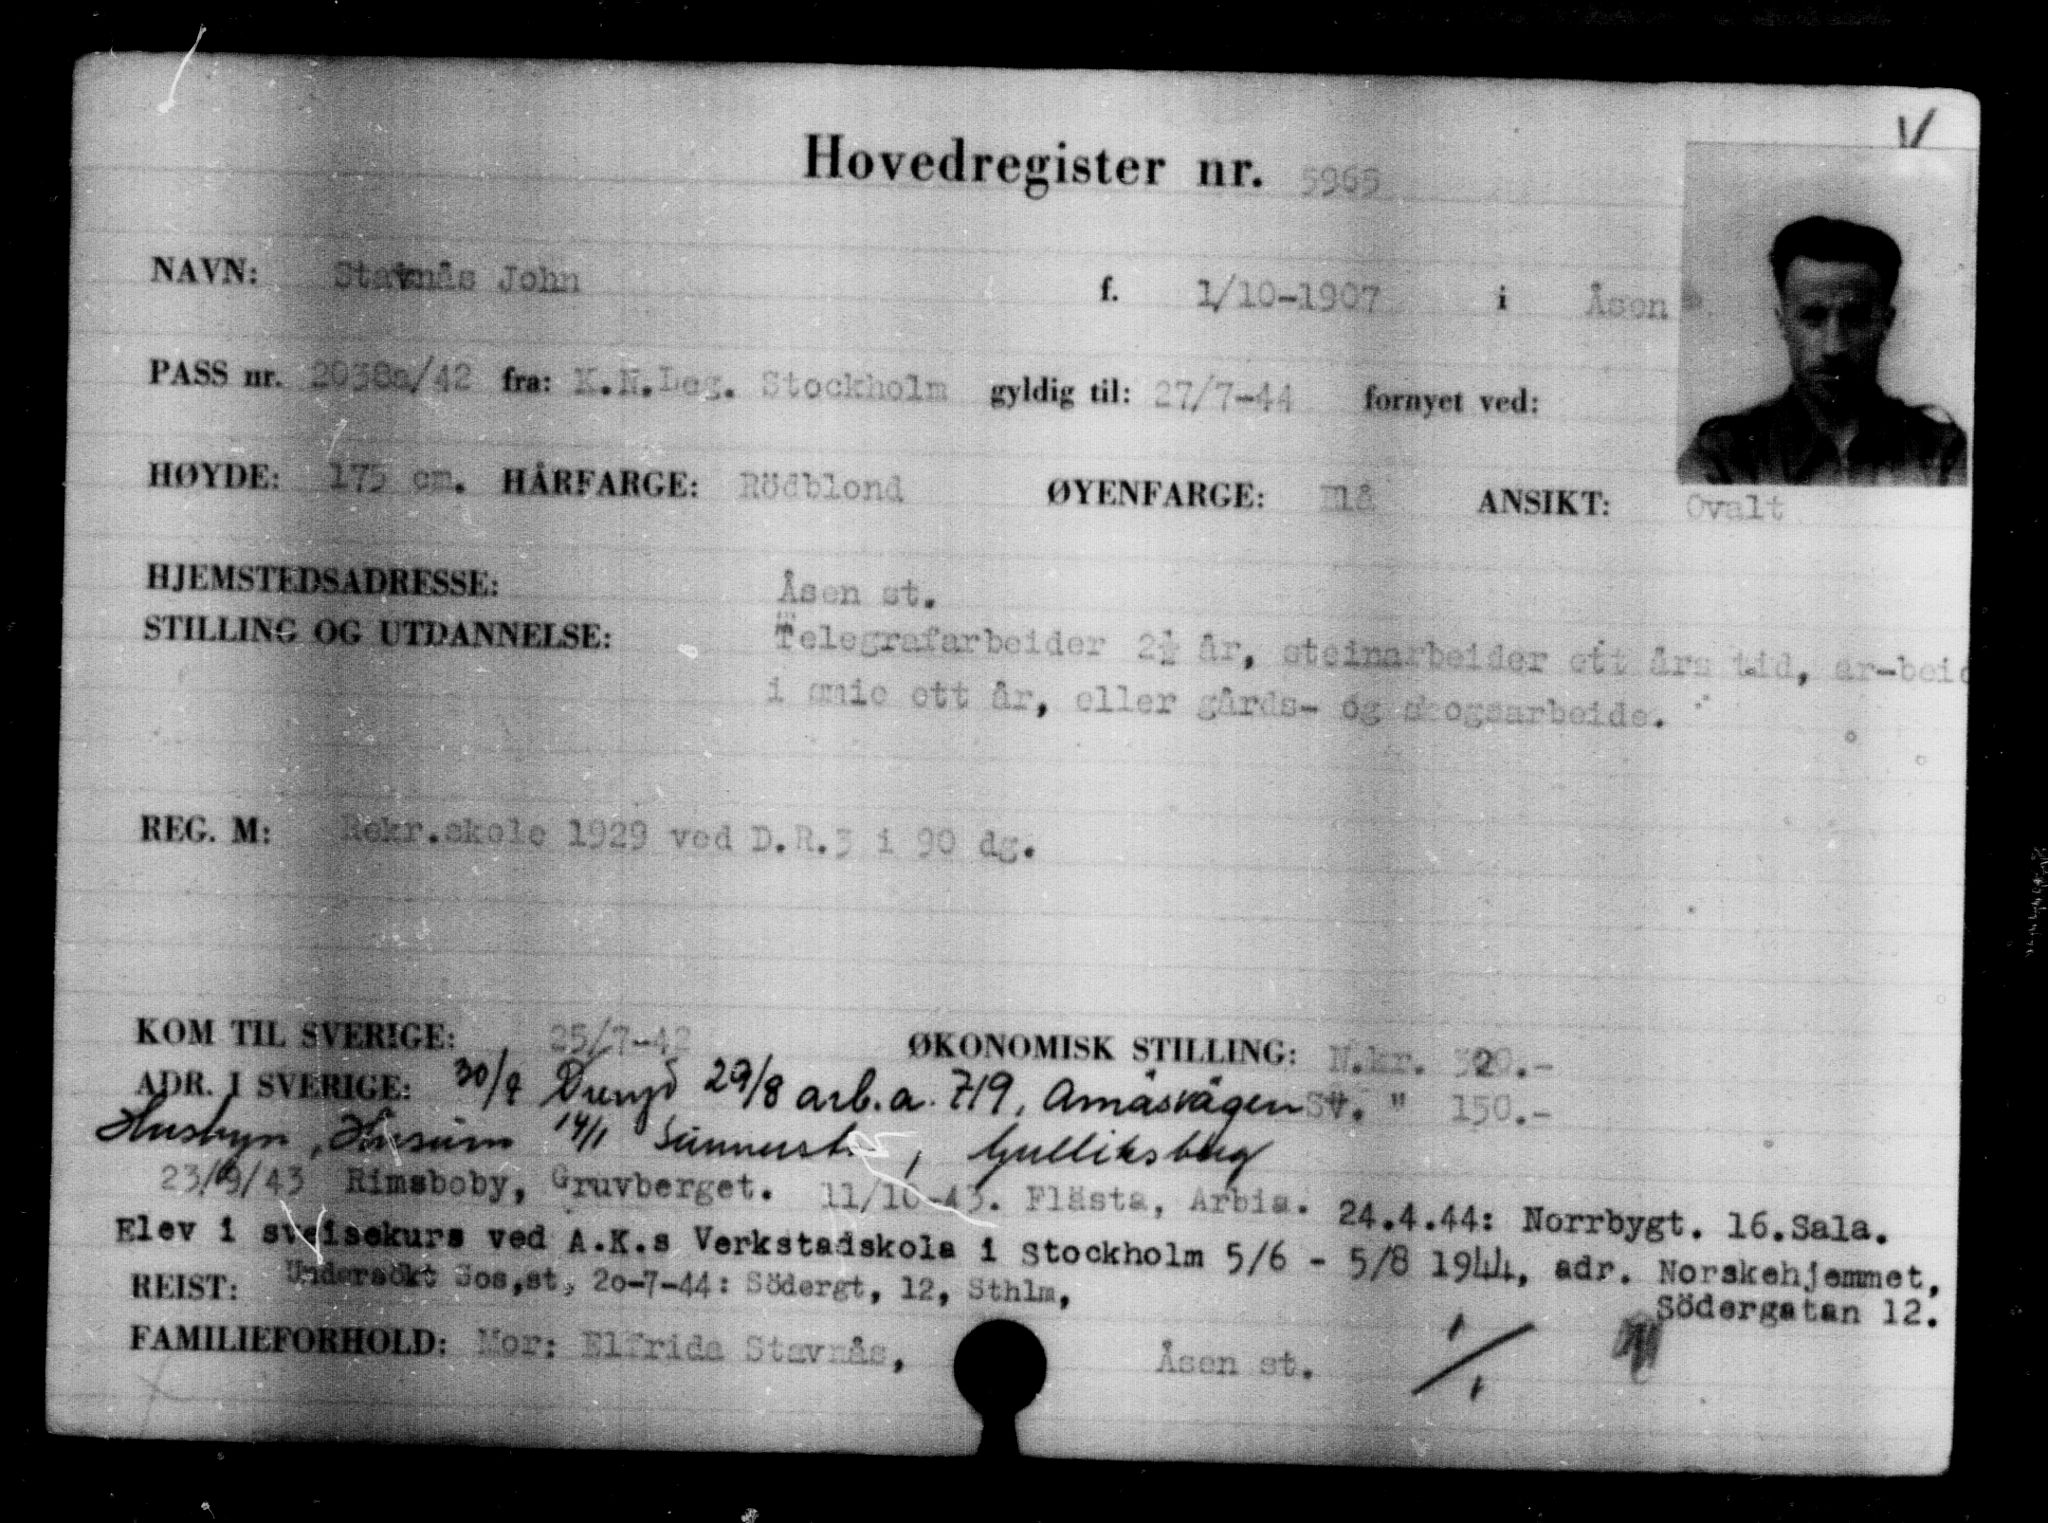 Hovedregister nr. 5965
NAVN: Stavnås John f. 1/10-1907 i Åsen
PASS nr. 2038a/42 fra: K.N.Leg. Stockholm gyldig til: 27/7-44 fornyet ved:
HØYDE: 175 cm. HÅRFARGE: Rödblond ØYENFARGE: Blå ANSIKT: Ovalt
HJEMSTEDSADRESSE: Åsen st.
STILLING OG UTDANNELSE: Telegrafarbeider 2½ år, steinarbeider ett års tid, ar-beid
i smie ett år, eller gårds- og skogsarbeide.
REG. M: Rekr.skole 1929 ved D.R.3 i 90 dg.
KOM TIL SVERIGE: 25/7-42 ØKONOMISK STILLING: N.kr. 320.-
ADR. I SVERIGE: 29/8 arb.a. 719, Amåsvägen Sv. " 150.-
Husbyn, Husum 14/1 Gulliksberg
23/9/43 Rimsboby, Gruvberget. 11/10-43. Flästa, Arbiå. 24.4.44: Norrbygt. 16.Sala.
Elev i sveisekurs ved A.K.s Verkstadskola i Stockholm 5/6 - 5/8 1944, adr. Norskehjemmet,
Södergatan 12.
REIST: Undersökt Jos,st, 20-7-44: Södergt, 12, Sthlm,
FAMILIEFORHOLD: Mor: Elfrida Stavnås, Åsen st.